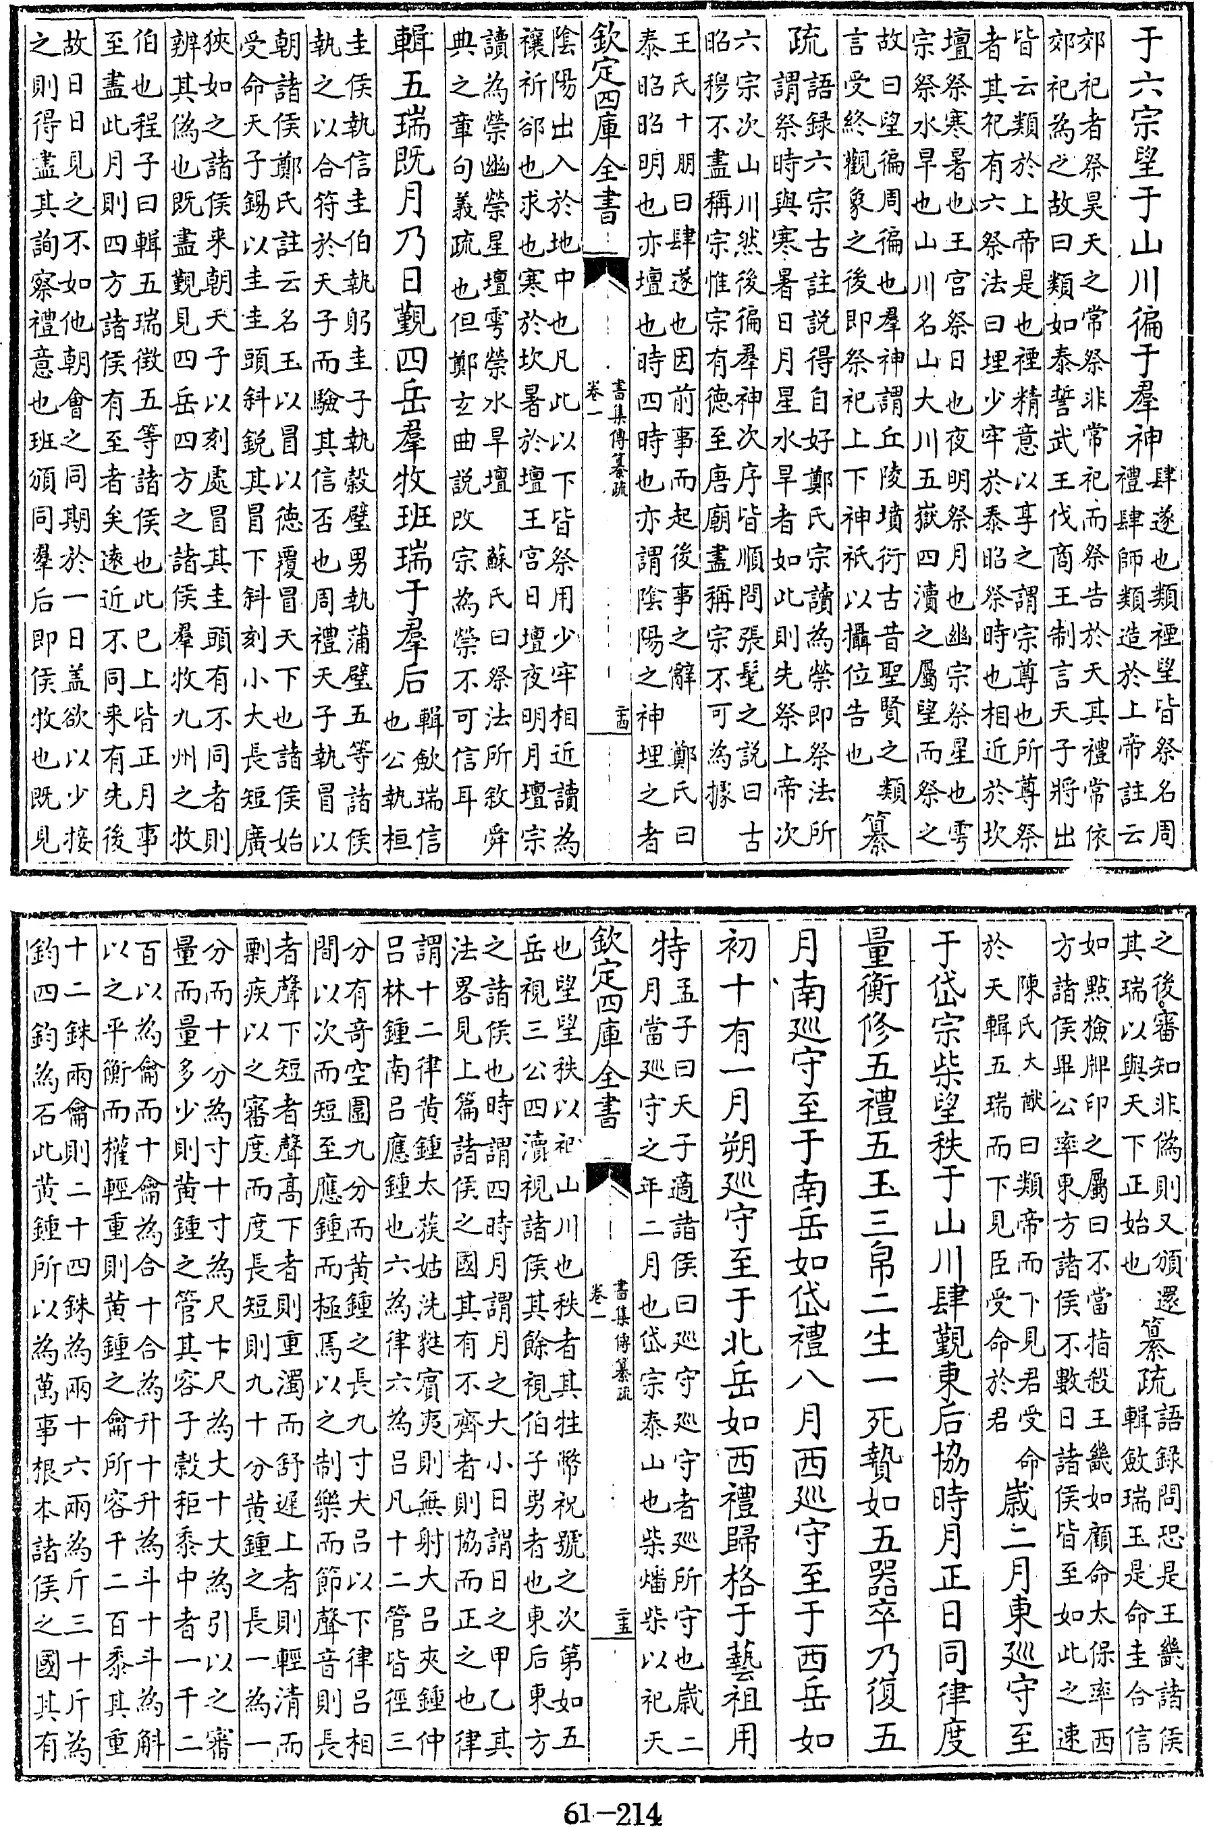 于六宗望于山川徧于羣神
肆遂也類禋望皆祭名周
禮肆師類造於上帝註云
郊祀者祭昊天之常祭非常祀而祭告於天其禮常依
郊祀為之故曰類如泰誓武王伐商王制言天子將出
皆云類於上帝是也禋精意以享之謂宗尊也所尊祭
者其祀有六祭法曰埋少牢於泰昭祭時也相近於坎
壇祭寒暑也王宮祭日也夜明祭月也幽宗祭星也雩
宗祭水旱也山川名山大川五嶽四瀆之屬望而祭之
故曰望徧周徧也羣神謂丘陵墳衍古昔聖賢之類
言受終觀象之後即祭祀上下神祇以攝位告也
纂
疏
語録六宗古註説得自好鄭氏宗讀為禜即祭法所
謂祭時與寒暑日月星水旱者如此則先祭上帝次
六宗次山川然後徧羣神次序皆順問張髦之説曰古
昭穆不盡稱宗惟宗有德至唐廟盡稱宗不可為據
王氏十朋曰肆遂也因前事而起後事之辭 鄭氏曰
泰昭昭明也亦壇也時四時也亦謂陰陽之神埋之者
欽定四庫全書
書集傳纂疏
卷一
二四
陰陽出入於地中也凡此以下皆祭用少牢相近讀為
禳祈郤也求也寒於坎暑於壇王宮日壇夜明月壇宗
讀為禜幽禜星壇雩禜水旱壇 蘇氏曰祭法所敘舜
典之章句義疏也但鄭玄曲説改宗為禜不可信耳
輯五瑞既月乃日覲四岳羣牧班瑞于羣后
輯斂瑞信
也公執桓
圭侯執信圭伯執躬圭子執穀璧男執蒲璧五等諸侯
執之以合符於天子而驗其信否也周禮天子執冒以
朝諸侯鄭氏註云名玉以冒以德覆冒天下也諸侯始
受命天子錫以圭圭頭斜鋭其冒下斜刻小大長短廣
狹如之諸侯来朝天子以刻處冒其圭頭有不同者則
辨其偽也既盡覲見四岳四方之諸侯羣牧九州之牧
伯也程子曰輯五瑞徵五等諸侯也此已上皆正月事
至盡此月則四方諸侯有至者矣逺近不同来有先後
故日日見之不如他朝會之同期於一日盖欲以少接
之則得盡其詢察禮意也班頒同羣后即侯牧也既見
之後審知非偽則又頒還
其瑞以與天下正始也
纂疏
語録問恐是王畿諸侯
輯斂瑞玉是命圭合信
如點檢牌印之屬曰不當指殺王畿如顧命太保率西
方諸侯畢公率東方諸侯不數日諸侯皆至如此之速
陳氏大猷曰類帝而下見君受命
於天輯五瑞而下見臣受命於君
歲二月東廵守至
于岱宗柴望秩于山川肆覲東后協時月正日同律度
量衡修五禮五玉三帛二生一死贄如五器卒乃復五
月南廵守至于南岳如岱禮八月西廵守至于西岳如
初十有一月朔廵守至于北岳如西禮歸格于藝祖用
特
孟子曰天子適諸侯曰廵守廵守者廵所守也歲二
月當廵守之年二月也岱宗泰山也柴燔柴以祀天
欽定四庫全書
書集傳纂疏
卷一
二五
也望望秩以祀山川也秩者其牲幣祝號之次第如五
岳視三公四瀆視諸侯其餘視伯子男者也東后東方
之諸侯也時謂四時月謂月之大小日謂日之甲乙其
法畧見上篇諸侯之國其有不齊者則協而正之也律
謂十二律黄鍾太蔟姑洗蕤賓夷則無射大吕夾鍾仲
吕林鍾南吕應鍾也六為律六為吕凡十二管皆徑三
分有奇空圍九分而黄鍾之長九寸大吕以下律吕相
間以次而短至應鍾而極焉以之制樂而節聲音則長
者聲下短者聲高下者則重濁而舒遲上者則輕清而
剽疾以之審度而度長短則九十分黄鍾之長一為一
分而十分為寸十寸為尺十尺為丈十丈為引以之審
量而量多少則黄鍾之管其容子穀秬黍中者一千二
百以為龠而十龠為合十合為升十升為斗十斗為斛
以之平衡而權輕重則黄鍾之龠所容千二百黍其重
十二銖兩龠則二十四銖為兩十六兩為斤三十斤為
鈞四鈞為石此黄鍾所以為萬事根本諸侯之國其有
61-214